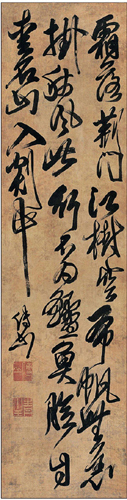 霜落荊門江樹空布帆無恙
掛秋風此行不為鱸魚膾自
愛名山入剡中
傅山